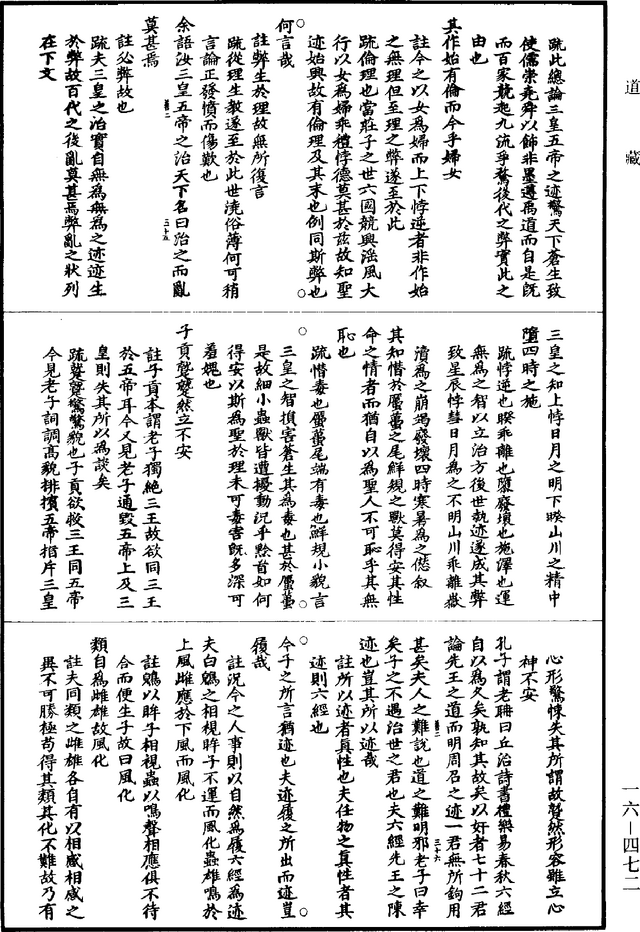 道藏
疏此總論三皇五帝之迹驚天下蒼生致
使儒崇堯舜以飾非墨遵禹道而自是旣
而百家競起九流爭騖後代之弊實此之
由也
其作始有倫而今乎婦女
註今之以女為婦而上下悖逆者非作始
之無理但至理之弊遂至於此
疏倫理也當莊子之世六國競興淫風大
行以女為婦乖禮悖德莫甚於玆故知聖
迹始興故有倫理及其末也例同斯弊也
何言哉
註弊生於理故無所復言
疏從理生教遂至於此世澆俗薄何可稍
言論正發憤而傷歎也
余語汝三皇五帝之治天下名曰治之而亂
莫甚焉
註必弊故也
疏夫三皇之治實自無為無為之迹迹生
於弊故百代之後亂莫甚焉弊亂之狀列
在下文
三皇之知上悖日月之明下睽山川之精中
墮四時之施
疏悖逆也睽乖離也墮廢壞也施澤也運
無為之智以立治方後世執迹遂成其弊
致星辰悖彗日月為之不明山川乖離嶽
瀆為之崩竭廢壞四時寒暑為之愆叙
其知憯於蠣蠆之尾鮮規之獸莫得安其性
命之情者而猶自以為聖人不可恥乎其無
恥也
疏憯毒也蠣蠆尾端有毒也鮮規小貌言
三皇之智損害蒼生其為毒也甚於蠣蠆
是故細小蟲獸皆遭擾動況乎黔首如何
得安以斯為聖於理未可毒害旣多深可
羞媿也
子貢蹵蹵然立不安
註子貢本謂老子獨絕三王故欲同三王
於五帝耳今又見老子通毀五帝上及三
皇則失其所以為談矣
疏蹵蹵驚貌也子貢欲救三王同五帝
今見老子詞調高貌排擯五帝指斥三皇
心形驚悚失其所謂故蹵然形容雖立心
神不安
孔子謂老聃曰丘治詩書禮樂易春秋六經
自以為久矣孰知其故矣以奸者七十二君
論先王之道而明周召之迹一君無所鉤用
甚矣夫人之難說也道之難明邪老子曰幸
矣子之不遇治世之君也夫六經先王之陳
迹也豈其所以迹哉
註所以迹者真性也夫任物之真性者其
迹則六經也
今子之所言猶迹也夫迹履之所出而迹豈
履哉
註況今之人事則以自然為履六經為迹
夫白鶂之相視眸子不運而風化蟲雄鳴於
上風雌應於下風而風化
註鶂以眸子相視蟲以鳴聲相應俱不待
合而便生子故曰風化
類自為雌雄故風化
註夫同類之雌雄各自有以相感相感之
異不可勝極苟得其類其化不難故乃有
一六—四七二